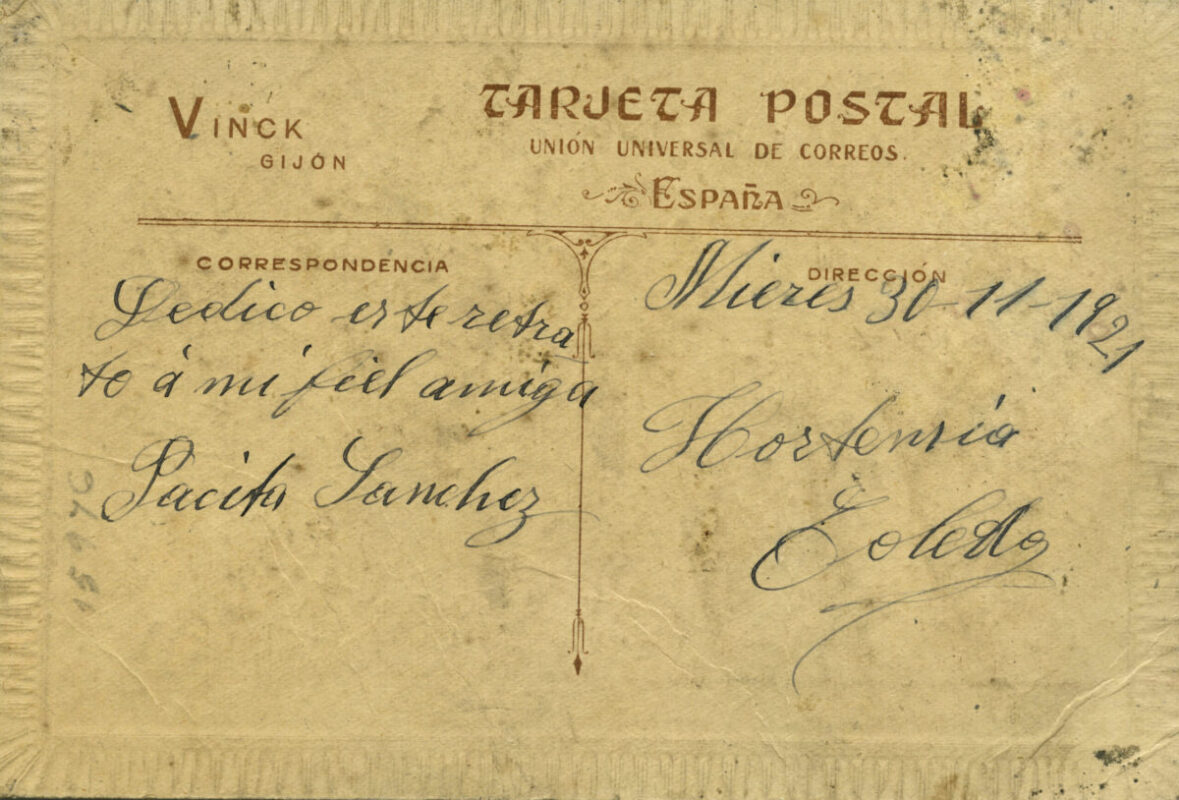 VINCK
GIJÓN
TARJETA POSTAL
UNIÓN UNIVERSAL DE CORREOS.
ESPAÑA
CORRESPONDENCIA
Dedico este retra
to á mi fiel amiga
Pacita Sanchez
DIRECCIÓN
Mieres 30-11-1921
Hortensia
Toledo